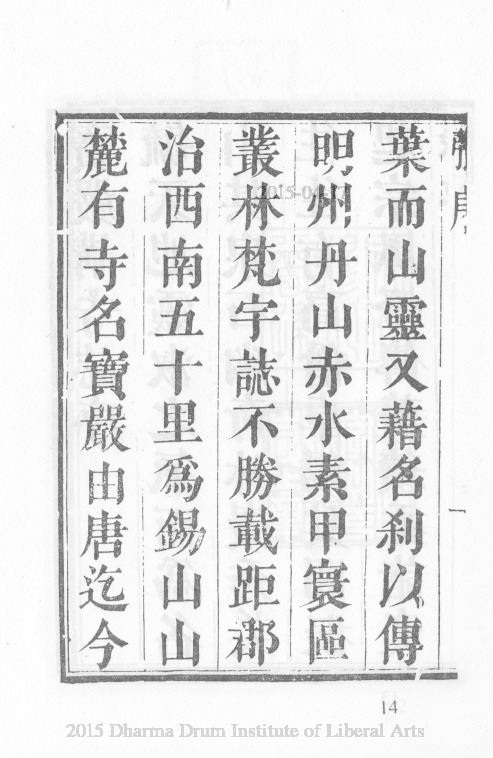 葉而山靈又藉名刹以傳
明州丹山赤水素甲寰區
叢林梵宇誌不勝載距郡
治西南五十里爲錫山山
麓有寺名寶嚴由唐迄今
一
14
2015 Dharma Drum Institute of Liberal Arts